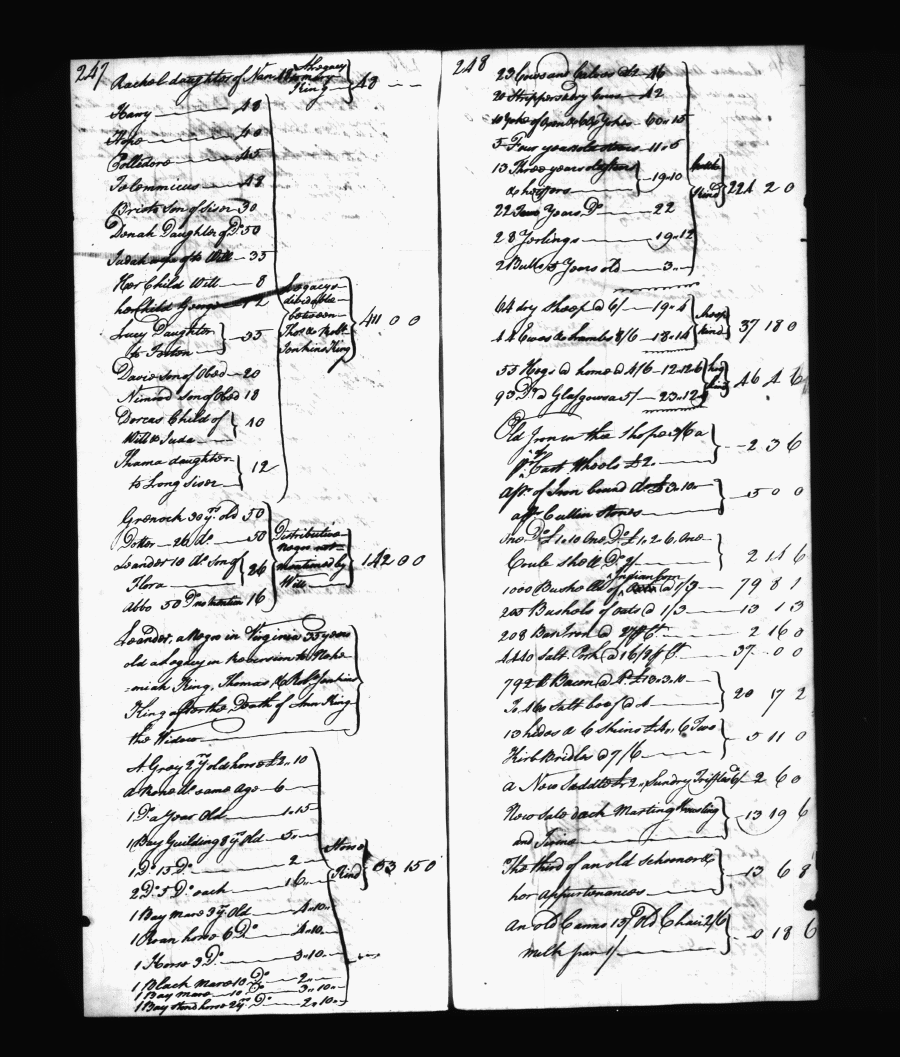 247
Rachel daughter of Nan A Legacy to Henry King 40 — —
Harry — 48
Hope — 40
Colledore — 45
Tolemmicus — 48
Bristo Son of Siser — 30
Denah Daughter of Do 50
Judah wife to Will — 35
Her Child Will — 8
her Child George — 12
Lucy Daughter
to Foston — 35
Legacys
divideble
between
Thos & Robt
Jenkins King
411 0 0
Davie Son of Obed — 20
Nimrod Son of Obed 18
Dorcas Child of
Will & Juda — 10
Thama daughter
to Long Siser — 12
Greenock 30 yrs old 50
Dotter — 26 do — 50
Leander 10 do Son of
Flora — 26
Abbo 50 Do 16
Distributive
negros not
mentioned by
Will
142 0 0
Leander, a Negro in Virginia 35 years
old a Legacy in Reversion to Nehe
=miah King, Thomas, & Robt Jenkins
King after the Death of Ann King
the Widow
A Gray 2 yr old horse £2,, 10
a Rone do same age — 6
1 Do a Year Old — 1,,15
1 Bay Guilding 8 yr Old — 5,,
1 Do 15 Do — 2
2 Do 5 Do each — 16,,
1 Bay mare 3 yr Old — 4,,10,,
1 Roan horse 6 Do — 4,,10,,
1 Horse 3 Do — 3,,10
1 Black mare 10 Do — 2,,
1 Bay mare — 10 Do — 3,,10
1 Bay stond horse 2 yr Do — 2,,10
Horse
Kind
53 15 0
248
23 Cows and Calves at 46
24 Strippers dry Cows — 42
10 Yoke of Oxen & Yokes — 60,,15
5 Four year old steers — 11,,5
13 Three years old steers
& heifers — 19,,10
22 Two Years Do — 22
28 Yerlings — 19,,12
2 Bulls 5 Years old — 3,,
Kind
224 2 0
64 dry Sheep @ 6/ — 19,,4
44 Ewes & Lambs 8/6 — 18,,14
Sheep
kind
37 18 0
55 Hogs @ home @ 4/6 — 12,,12,,6
93 Do @ Glasgows @ 5/ — 23,,12
hog
kind
46 4 6
Old Iron in the Shop 23/6 a
pr Cart Wheels £2,, — 2 3 6
a pr of Iron bound do £3,,10
a pr Cullin Stones — 5 0 0
One Do £1,,10 One Do £1,,2,,6, One
Coule Shell Do 2/ — 2 14 6
1000 Bushells of Indian Corn @ 1/3 — 79 8 1
205 Bushels of Oats @ 1/3 — 13 1 3
208 Bar Iron @ 27/ Ct — 2 16 0
4440 Salt Pork @ 16/8 Ct — 37 — 0 0
792 lb Bacon @ 4d £13,,3,,10
To 460 Salt beef @ 4 — 20 17 2
13 hides & 6 Skins £4,,16 Two
Kirb Bridles @ 7/6 — 5 11 0
a New Saddle £2,, Sundry Trifles 6/ — 2 6 0
New Sale each Marting housling
and Twine — 13 19 6
The third of an old Schooner &
her appurtenances — 13 6 8
An Old Canno 15/ Old Chair 2/6
milk pan 1/ — 0 18 6